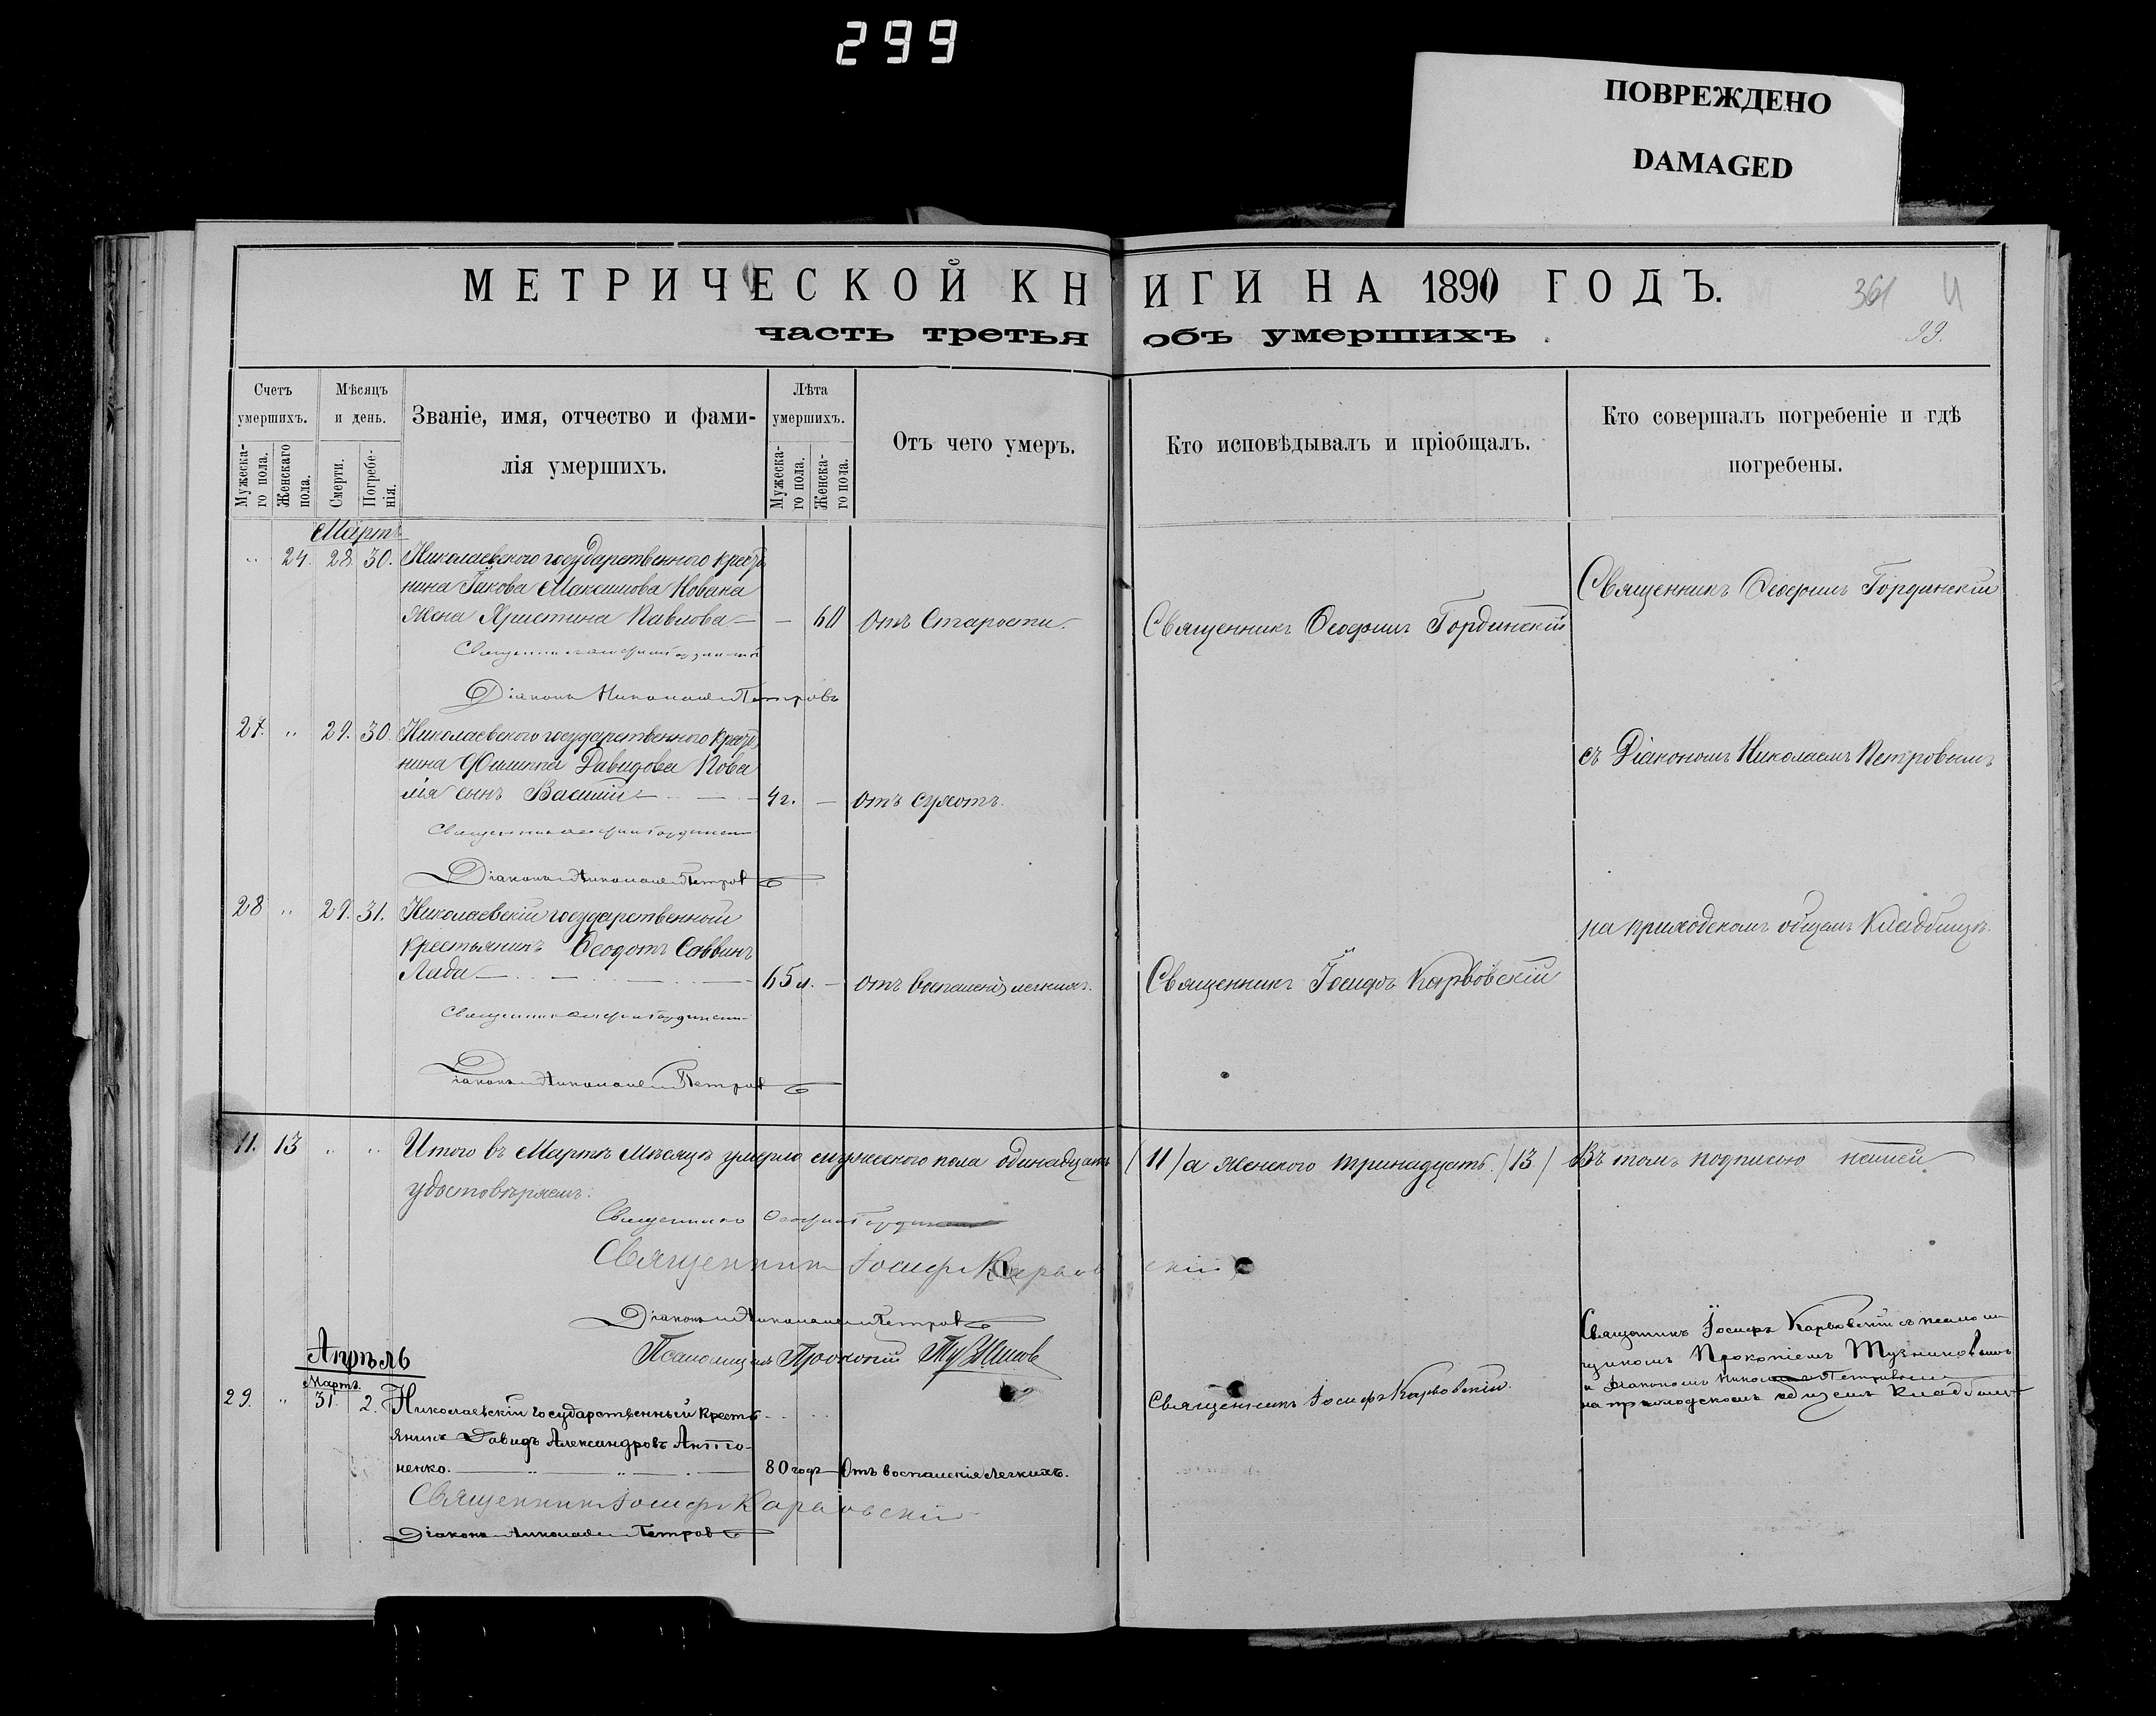 299
ПОВРЕЖДЕНО
DAMAGED
МЕТРИЧЕСКОЙ КНИГИ НА 1890 ГОДЪ.
361
99.
часть третья объ умершихъ.
Счетъ умершихъ.
Мужеска-го пола.
Женскаго пола.
Мѣсяцъ и день.
Смерти.
Погребе-нія.
Званіе, имя, отчество и фами-
лія умершихъ.
Лѣта умершихъ.
Мужеска-го пола.
Женска-го пола.
Отъ чего умеръ.
Кто исповѣдывалъ и пріобщалъ.
Кто совершалъ погребеніе и гдѣ
погребены.
Мартъ
" 24. 28. 30. Николаевского государственного крестья
нина Іякова Максимова Новака
жена Христина Павлова — — 60 отъ Старости.
Священникъ Ѳеофилъ Гординскій
Священникъ Ѳеофилъ Гординскій
Діаконъ Николай Петровъ
27. " 29. 30. Николаевского государственного крестья
нина Филиппа Давидова Кова
лія сынъ Василій — 4 г. — отъ сухотъ.
съ Діакономъ Николаемъ Петровымъ
Діаконъ Николай Петровъ
28 " 29. 31. Николаевскій государственный
крестьянинъ Ѳеодотъ Саввинъ
Лада — 65 л. — отъ воспаленія легкихъ.
Священникъ Іосифъ Карвовскій
на приходскомъ общемъ кладбищѣ.
Діаконъ Николай Петровъ
11. 13 " " Итого въ Мартѣ мѣсяцѣ умерло мужеского пола одинадцать (11) а женского тринадцать (13) Въ томъ подписью нашей
удостовѣряемъ:
Священникъ Ѳеофилъ Гординскій
Священникъ Іосифъ Карвовскій
Діаконъ Николай Петровъ
Псаломщикъ Прокопій
Апрѣль
Мартъ.
29. " 31. 2. Николаевскій государственный кресть
янинъ Давидъ Александровъ Анто-
ненко. — 80 годъ — Отъ воспаленія легкихъ.
Священникъ Іосифъ Карвовскій.
Священникъ Іосифъ Карвовскій съ псалом
щикомъ Прокопіемъ
и Діакономъ Николаемъ Петровымъ
на приходскомъ общемъ кладбищѣ
Священникъ Іосифъ Карвовскій
Діаконъ Николай Петровъ